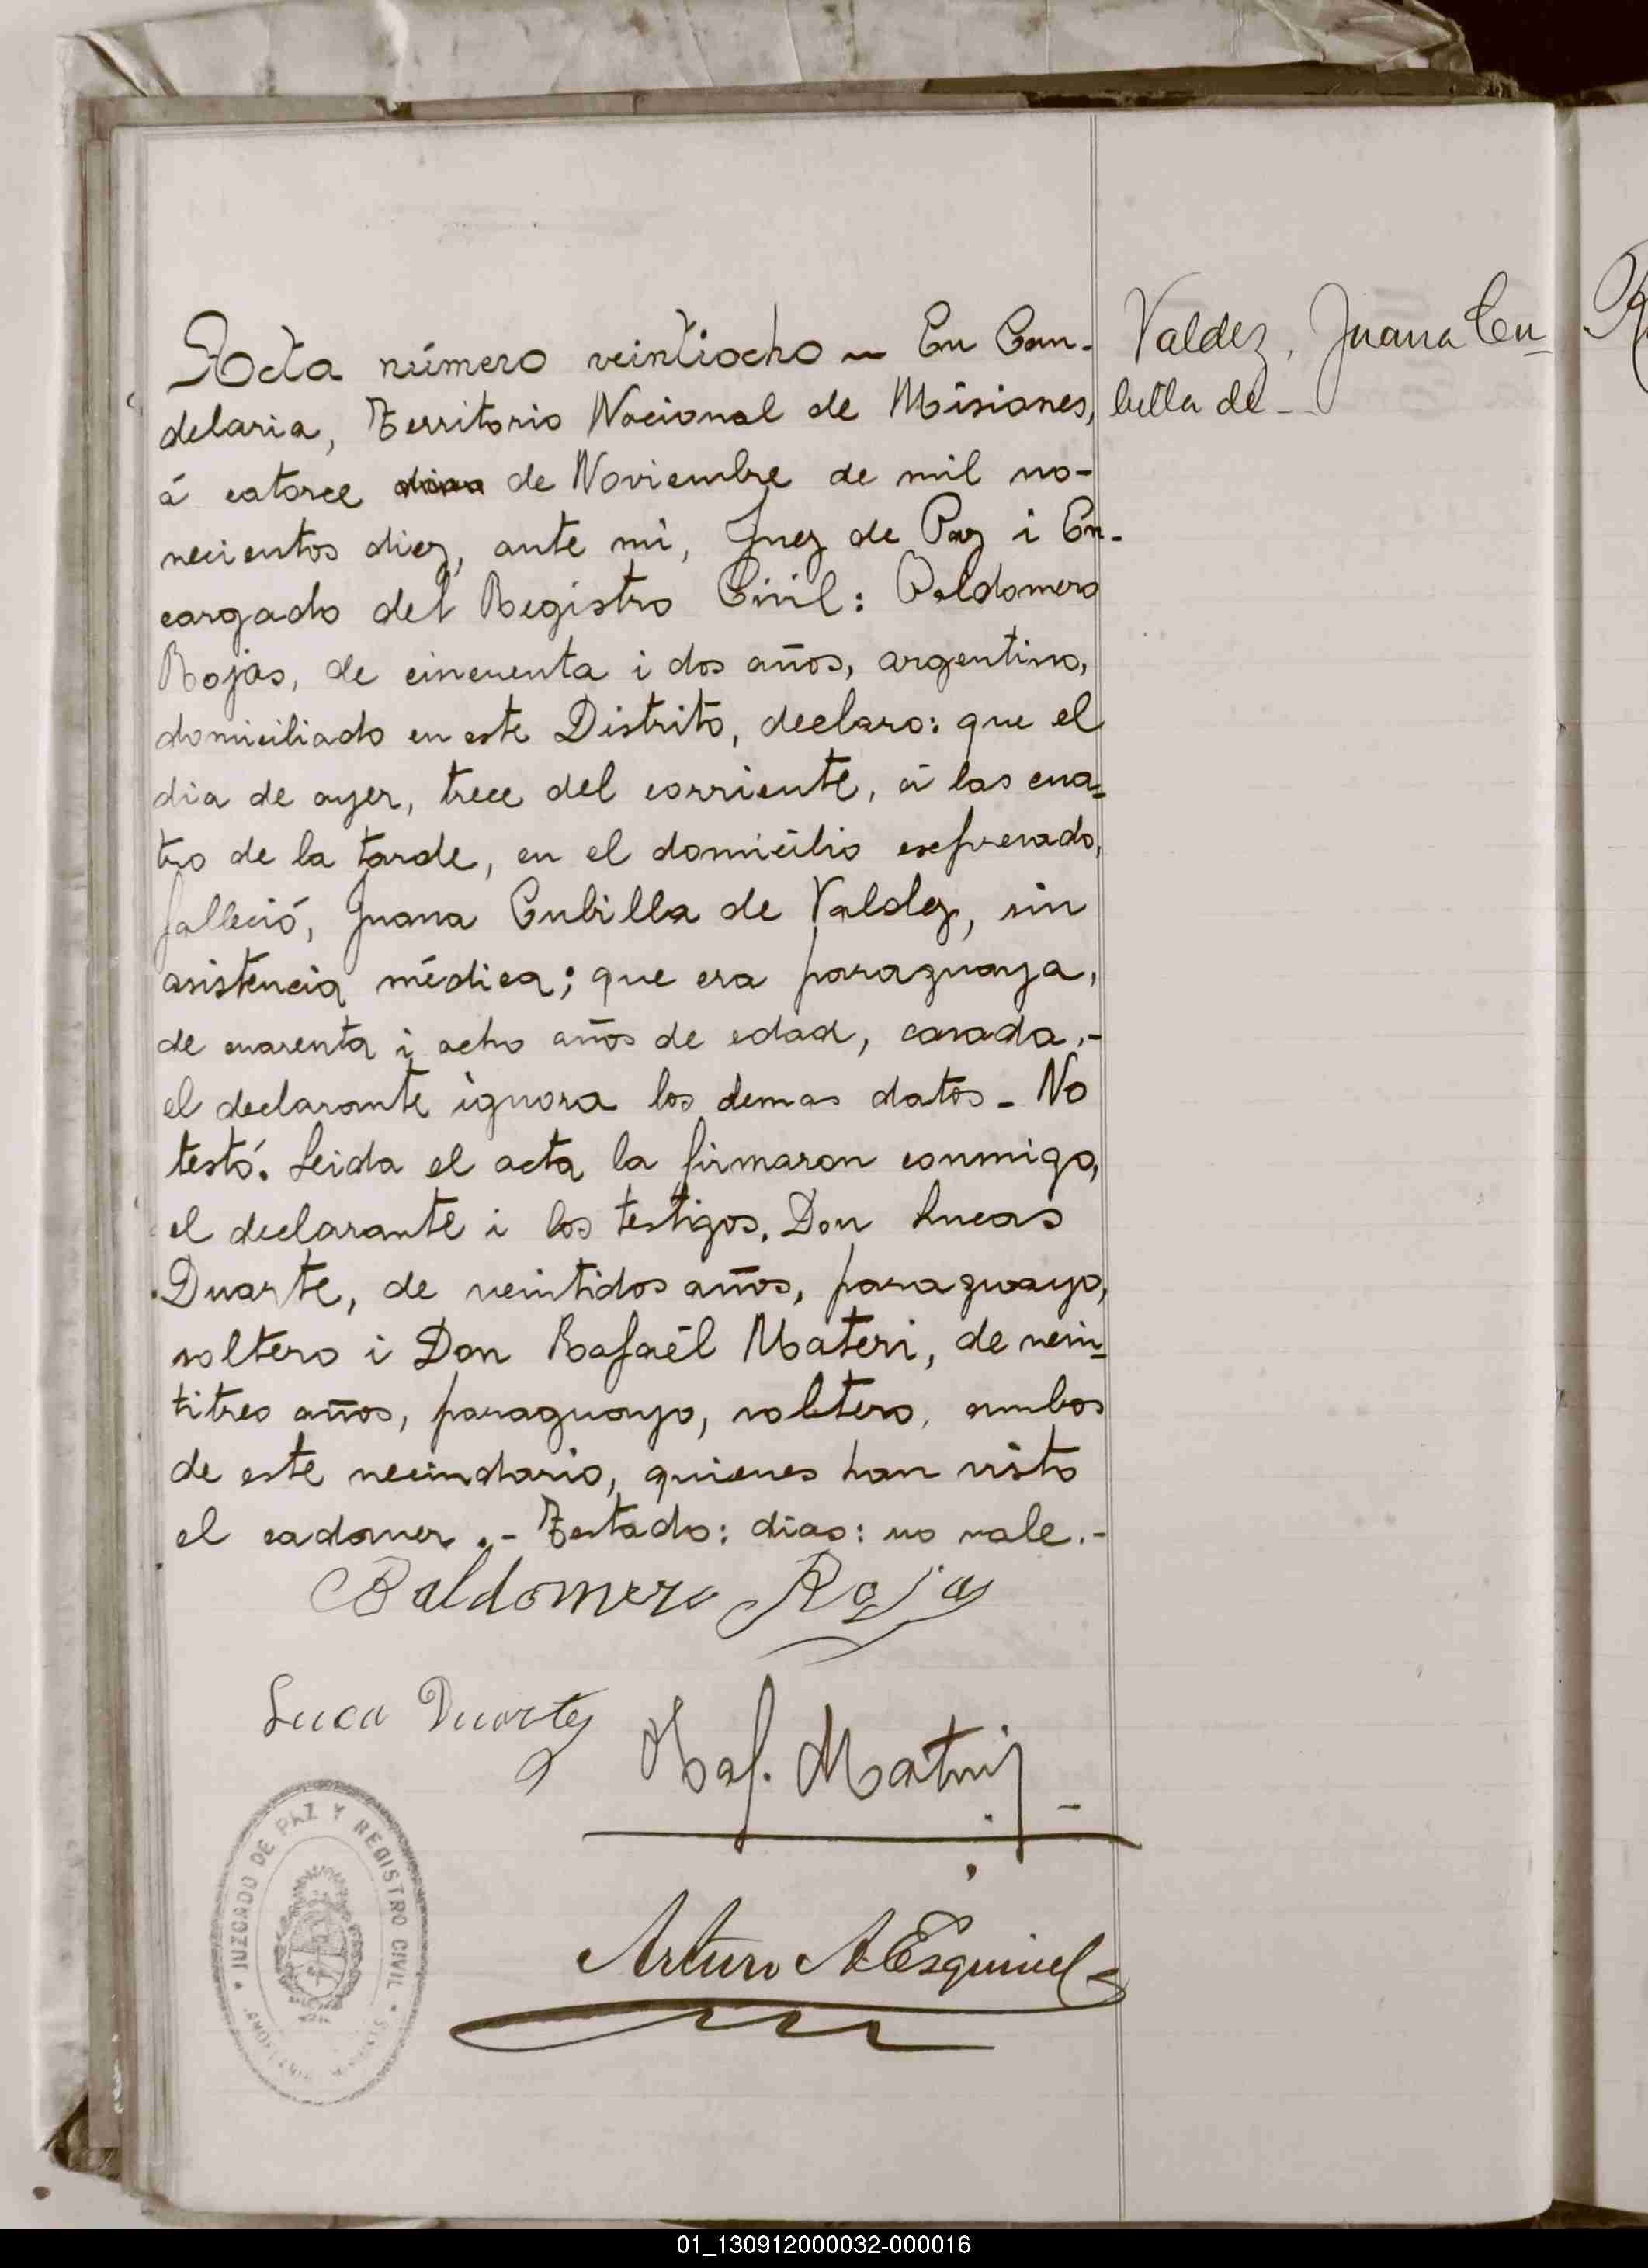 Acta número veintiocho - En Can-
delaria, Territorio Nacional de Misiones,
á catorce dias de Noviembre de mil no-
vecientos diez, ante mi, Juez de Paz i En-
cargado del Registro Civil: Baldomero
Rojas, de cincuenta i dos años, argentino,
domiciliado en este Distrito, declaro: que el
dia de ayer, trece del corriente, á las cua-
tro de la tarde, en el domicilio expresado,
falleció, Juana Cubilla de Valdez, sin
asistencia médica; que era paraguaya,
de cuarenta i ocho años de edad, casada.-
el declarante ignora los demas datos - No
testó. Leida el acta la firmaron conmigo,
el declarante i los testigos, Don Lucas
Duarte, de veintidos años, paraguayo,
soltero i Don Rafaél Materi, de vein-
titres años, paraguayo, soltero, ambos
de este vecindario, quienes han visto
el cadaver .- Testado: dias: no vale.-
Valdez, Juana Cu-
billa de -
Baldomero Rojas
Luca Duarte
Raf. Materi
Arturo A Esquivel
JUZGADO DE PAZ Y REGISTRO CIVIL
01_130912000032-000016